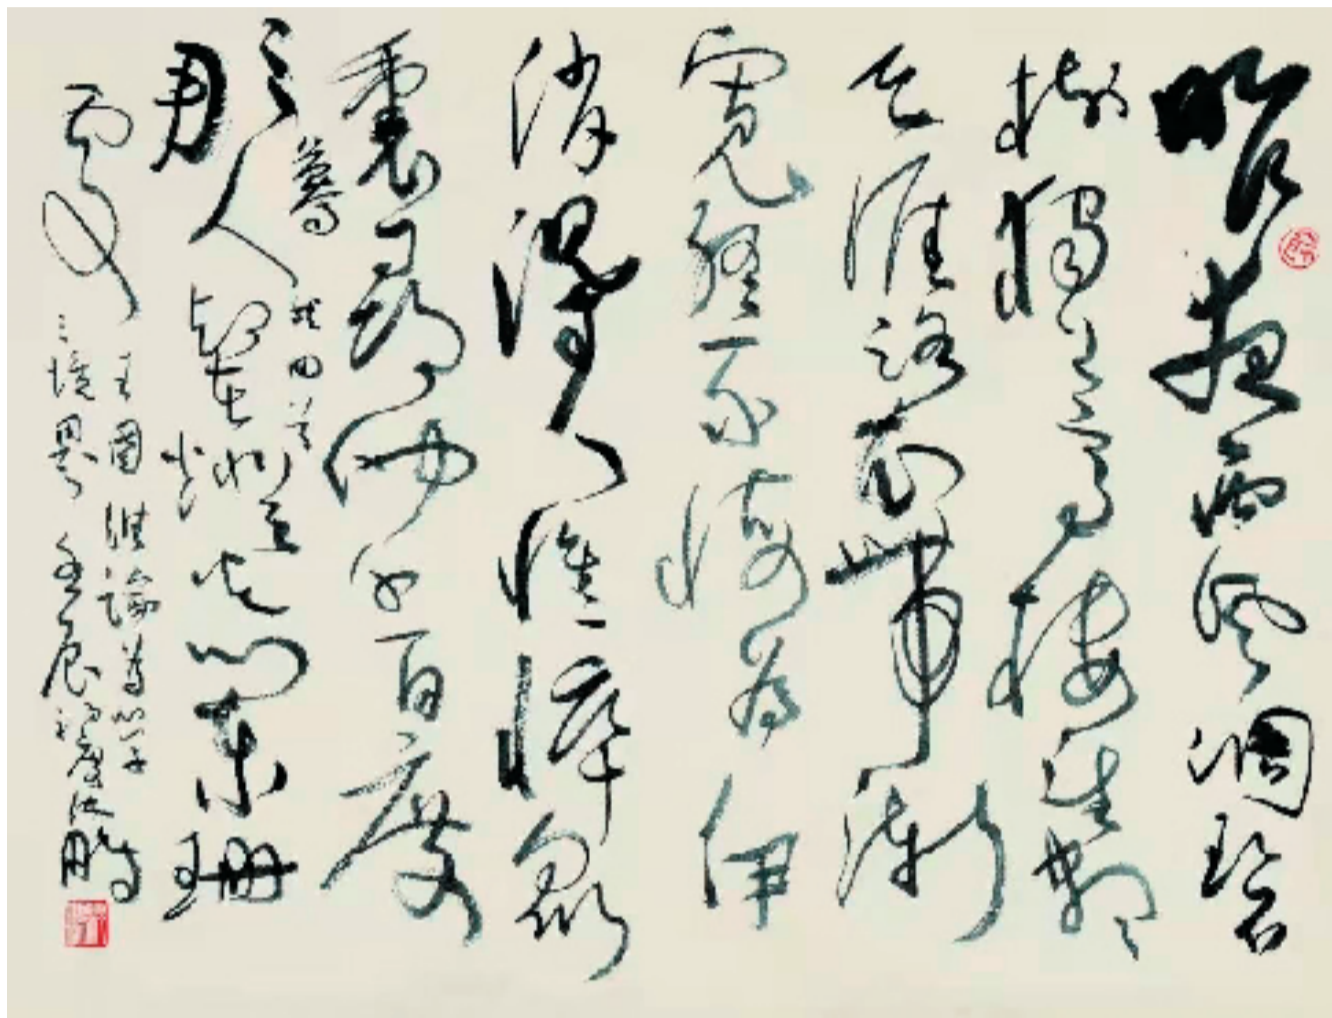 昨夜西風凋碧
樹獨上高樓望
天涯路衣帶漸
寬終不悔為伊
消得人憔悴眾
裏尋他千百度
驀然回首
那人卻在燈火闌珊
處
王國維論為學
三境界 壬辰初度沈鵬